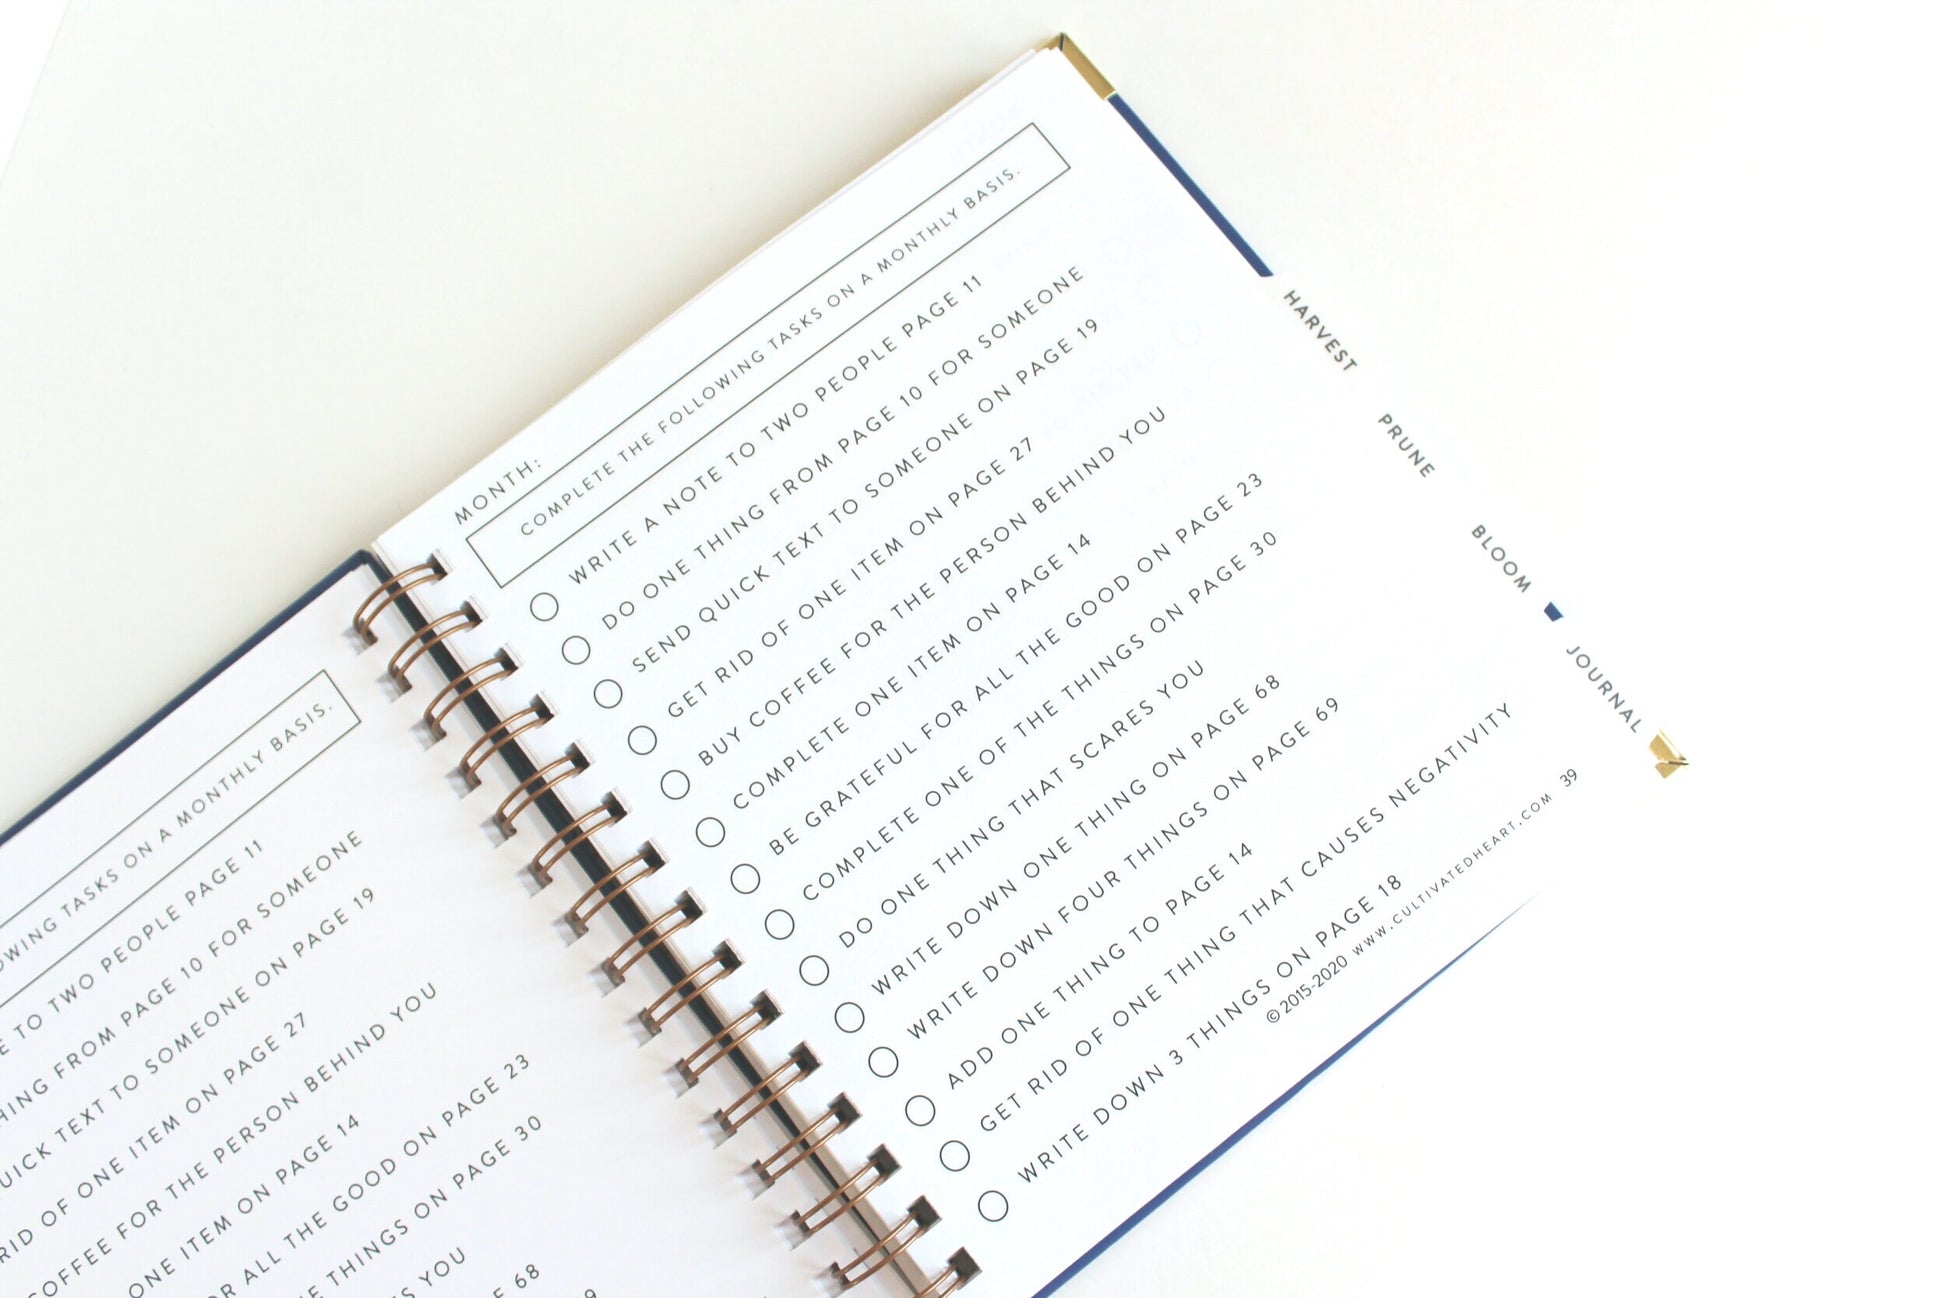 OWING TASKS ON A MONTHLY BASIS.
TO TWO PEOPLE PAGE 11
HING FROM PAGE 10 FOR SOMEONE
UICK TEXT TO SOMEONE ON PAGE 19
RID OF ONE ITEM ON PAGE 27
COFFEE FOR THE PERSON BEHIND YOU
ONE ITEM ON PAGE 14
OR ALL THE GOOD ON PAGE 23
THINGS ON PAGE 30
YOU
68
MONTH:
COMPLETE THE FOLLOWING TASKS ON A MONTHLY BASIS.
WRITE A NOTE TO TWO PEOPLE PAGE 11
DO ONE THING FROM PAGE 10 FOR SOMEONE
SEND QUICK TEXT TO SOMEONE ON PAGE 19
GET RID OF ONE ITEM ON PAGE 27
BUY COFFEE FOR THE PERSON BEHIND YOU
COMPLETE ONE ITEM ON PAGE 14
BE GRATEFUL FOR ALL THE GOOD ON PAGE 23
COMPLETE ONE OF THE THINGS ON PAGE 30
DO ONE THING THAT SCARES YOU
WRITE DOWN ONE THING ON PAGE 68
WRITE DOWN FOUR THINGS ON PAGE 69
ADD ONE THING TO PAGE 14
GET RID OF ONE THING THAT CAUSES NEGATIVITY
WRITE DOWN 3 THINGS ON PAGE 18
©2015-2020 WWW.CULTIVATEDHEART.COM 39
HARVEST
PRUNE
BLOOM
JOURNAL